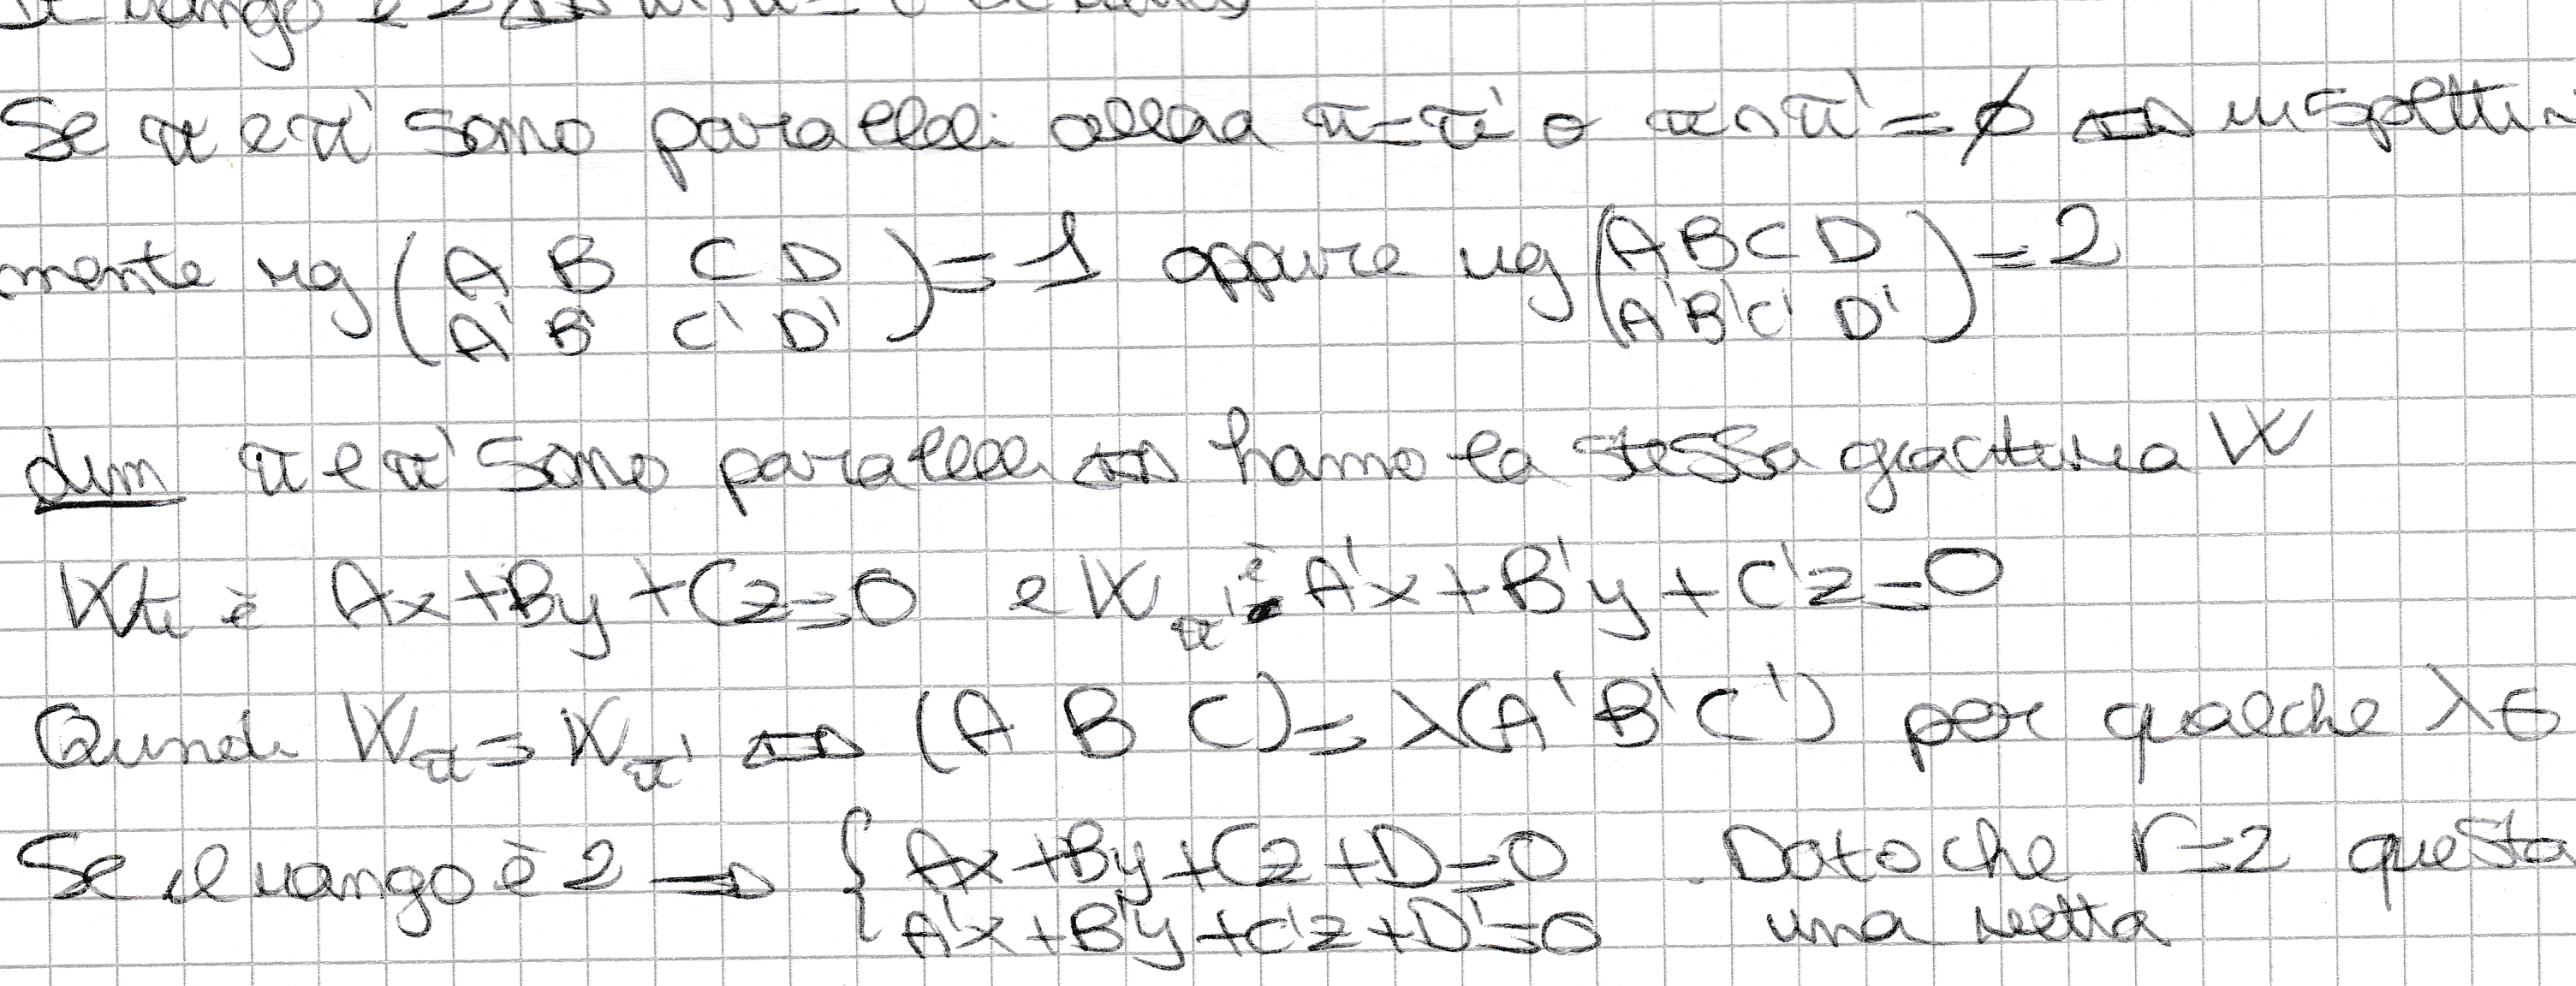 Se rango è 2
Se π e π' sono paralleli allora π=π' o π∩π'=∅ ⇔ rispettiva
mente rg (A B C D
A' B' C' D') = 1 oppure rg (A B C D
A' B' C' D') = 2
dim π e π' sono paralleli ⇔ hanno la stessa giacitura W
Wπ è Ax+By+Cz=0 e Wπ' è A'x+B'y+C'z=0
Quindi Wπ=Wπ' ⇔ (A B C)=λ(A' B' C') per qualche λ∈
Se il rango è 2 ⇒ { Ax+By+Cz+D=0 . Dato che r=2 questa
A'x+B'y+C'z+D'=0 una retta